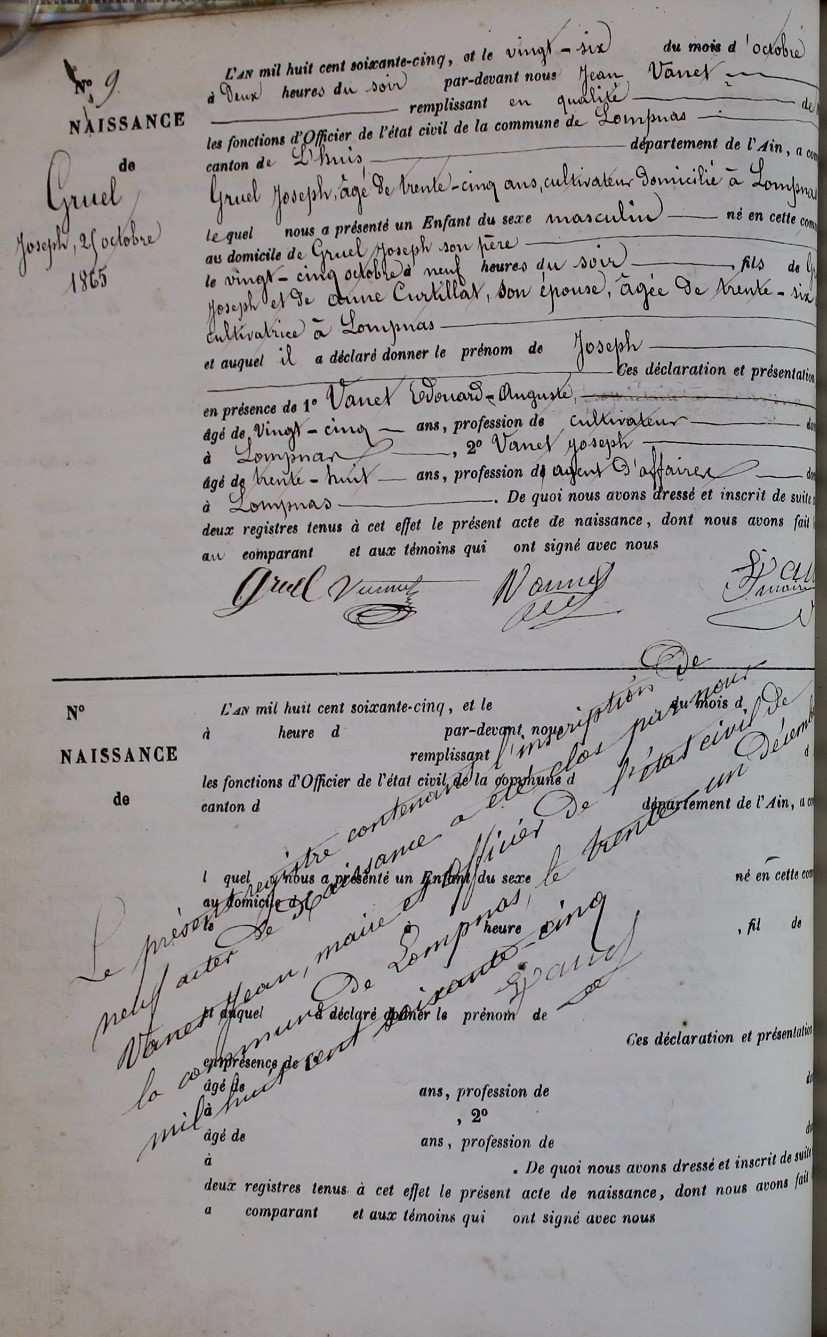 N° 9.
NAISSANCE
de
Gruel
Joseph, 25 octobre
1865
L'AN mil huit cent soixante-cinq, et le vingt-six du mois d'octobre
à Deux heures du soir par-devant nous Jean Vanet
remplissant en qualité de
les fonctions d'Officier de l'état civil de la commune de Lompnas
canton de L'huis département de l'Ain, a com
Gruel Joseph, âgé de trente-cinq ans, cultivateur domicilié à Lompnas
lequel nous a présenté un Enfant du sexe masculin né en cette com
au domicile de Gruel Joseph son père
le vingt-cinq octobre à neuf heures du soir, fils de Gr
Joseph et de anne Curtillat, son épouse, âgée de trente-six
cultivatrice à Lompnas
et auquel il a déclaré donner le prénom de Joseph
Ces déclaration et présentation
en présence de 1° Vanet Edouard-Auguste,
âgé de vingt-cinq ans, profession de cultivateur dom
à Lompnas, 2° Vanet Joseph
âgé de trente-huit ans, profession d'agent d'affaires dom
à Lompnas. De quoi nous avons dressé et inscrit de suite s
deux registres tenus à cet effet le présent acte de naissance, dont nous avons fait l
au comparant et aux témoins qui ont signé avec nous
Gruel
N°
NAISSANCE
de
L'AN mil huit cent soixante-cinq, et le du mois d
à heure d par-devant nous
remplissant d
les fonctions d'Officier de l'état civil de la commune d
canton d département de l'Ain, a com
l quel nous a présenté un Enfant du sexe né en cette com
au domicile d
le à heure d, fil de
et auquel a déclaré donner le prénom de
Ces déclaration et présentation
en présence de 1°
âgé de ans, profession de do
à , 2°
âgé de ans, profession de do
à . De quoi nous avons dressé et inscrit de suite
deux registres tenus à cet effet le présent acte de naissance, dont nous avons fait l
a comparant et aux témoins qui ont signé avec nous
Le présent registre contenant l'inscription de
neuf actes de Naissance a été clos par nous
Vanet Jean, maire et officier de l'état civil de
la commune de Lompnas, le trente-un décemb
mil huit cent soixante-cinq
Vanet